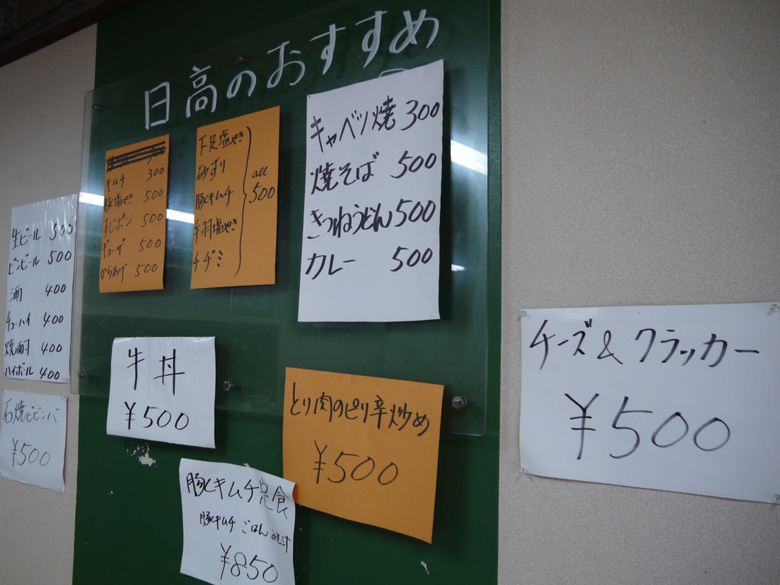 日高のおすすめ
キムチ 300
豚塩やき 500
チヂポン 500
ギョーザ 500
からあげ 500
下足塩やき
砂ずり
豚キムチ
手羽塩やき
チヂミ
all
500
キャベツ焼 300
焼そば 500
きつねうどん 500
カレー 500
生ビール 500
ビンビール 500
酒 400
チューハイ 400
焼酎 400
ハイボール 400
石焼ビビンバ
¥500
牛丼
¥500
とり肉のピリ辛炒め
¥500
豚キムチ定食
豚キムチ ごはん みそ汁
¥850
チーズ&クラッカー
¥500